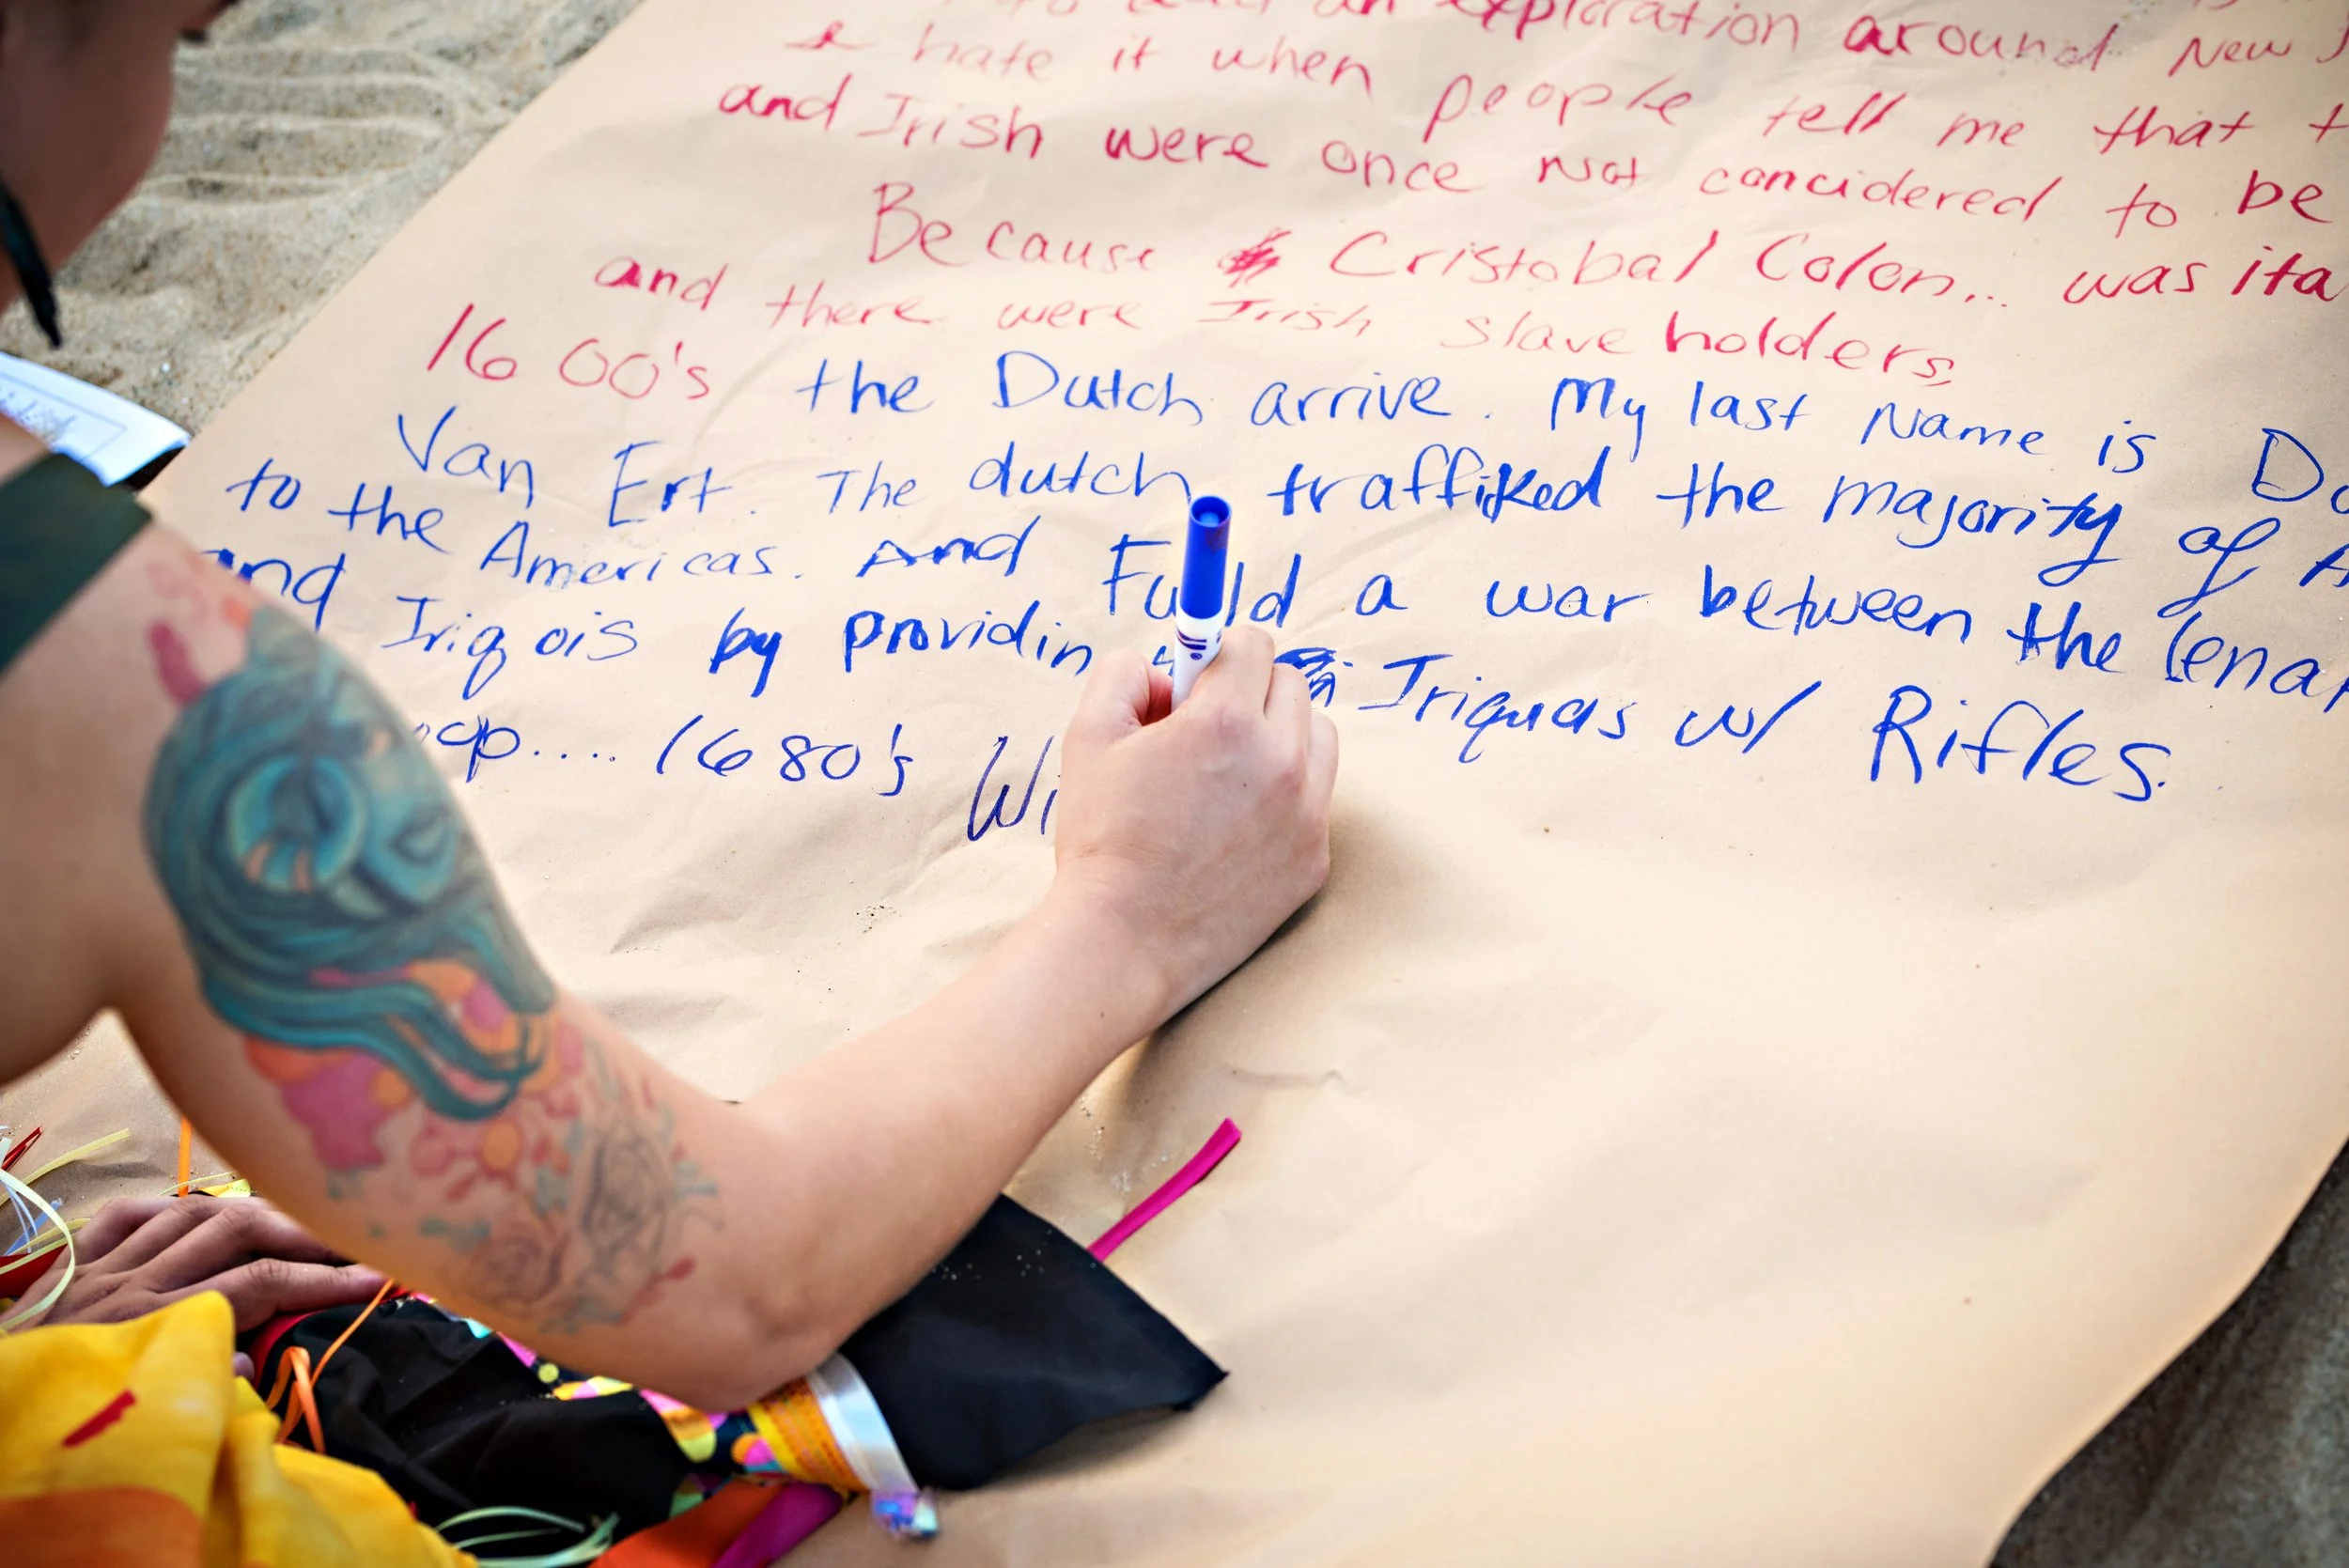 an exploration around New
I hate it when people tell me that
and Irish were once Not concidered to be
Because Cristobal Colon... was ita
and there were Irish slave holders,
1600's the Dutch arrive. My last Name is
Van Ert. The dutch traffiked the majority of
to the Americas. And Fu ld a war between the Lenap
and Iriqois by providin Iriquas w/ Rifles.
1680's Wi